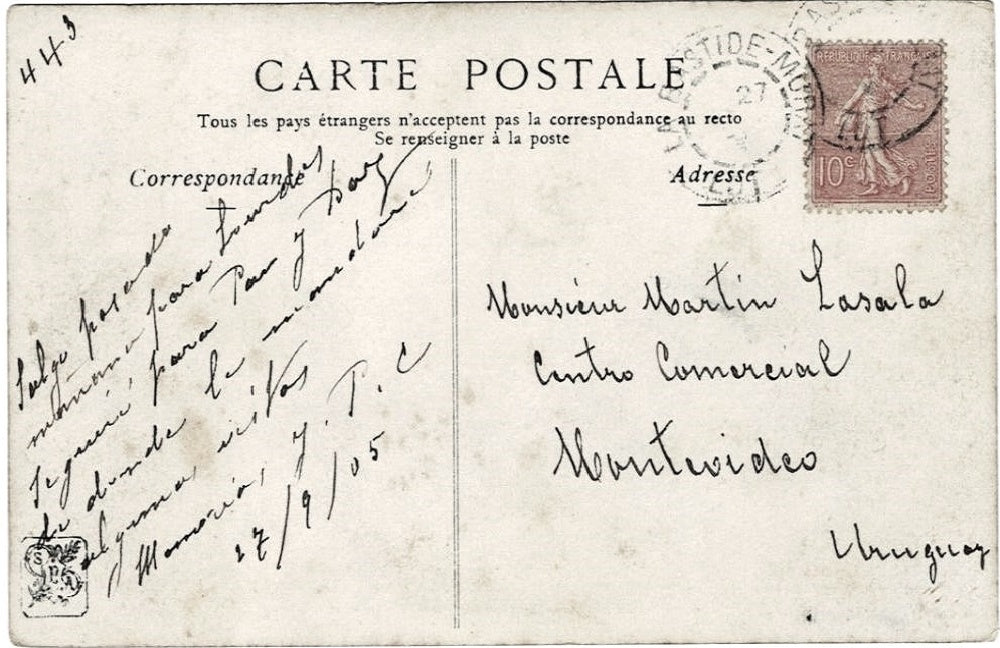 443
CARTE POSTALE
Tous les pays étrangers n'acceptent pas la correspondance au recto
Se renseigner à la poste
Correspondance
Adresse
Salgo pasado
mañana para Lourdes
seguiré para Pau y
de donde le mandaré
algunas vistas
Memorias, y. P. C
27/9/05
Monsieur Martin Lasala
Centro Comercial
Montevideo
Uruguay
LA BASTIDE-MURAT
27
LOT
REPUBLIQUE FRANÇAISE
10c
POSTES